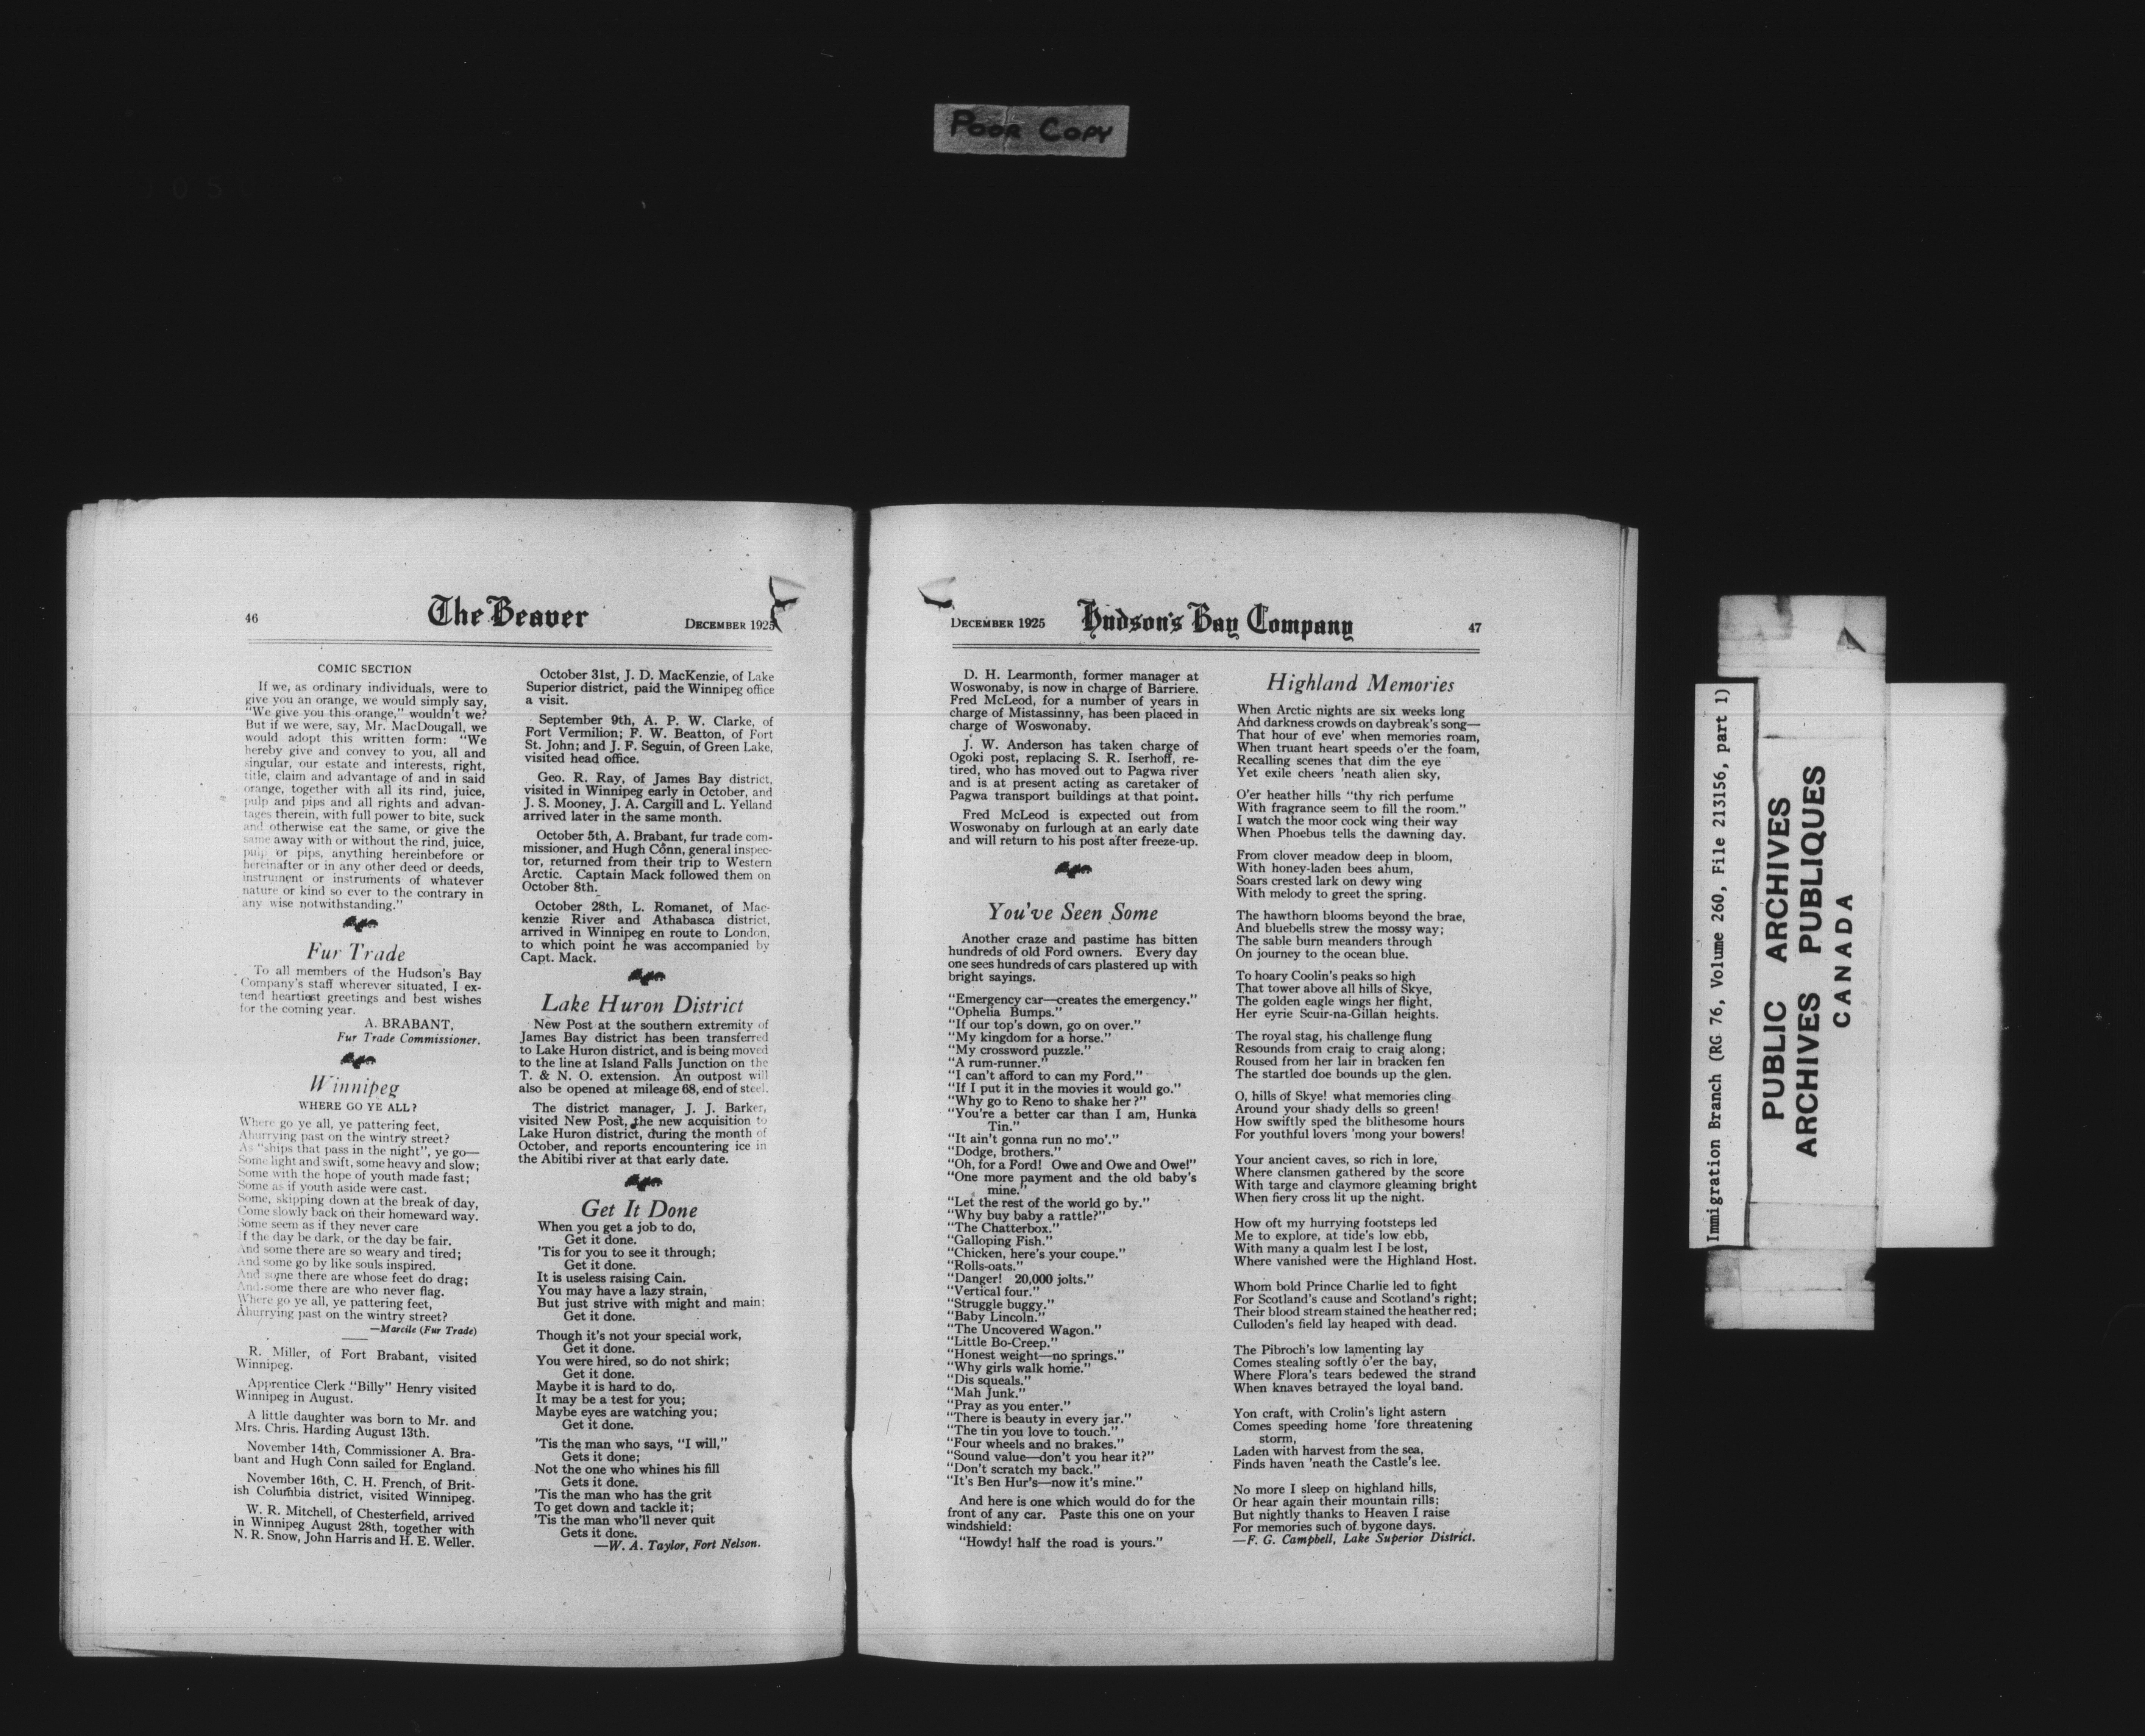 POOR COPY
46
The Beaver
DECEMBER 1925
COMIC SECTION
If we, as ordinary individuals, were to
give you an orange, we would simply say,
"We give you this orange," wouldn't we?
But if we were, say, Mr. MacDougall, we
would adopt this written form: "We
hereby give and convey to you, all and
singular, our estate and interests, right,
title, claim and advantage of and in said
orange, together with all its rind, juice,
pulp and pips and all rights and advan-
tages therein, with full power to bite, suck
and otherwise eat the same, or give the
same away with or without the rind, juice,
pulp or pips, anything hereinbefore or
hereinafter or in any other deed or deeds,
instrument or instruments of whatever
nature or kind so ever to the contrary in
any wise notwithstanding."
Fur Trade
To all members of the Hudson's Bay
Company's staff wherever situated, I ex-
tend heartiest greetings and best wishes
for the coming year.
A. BRABANT,
Fur Trade Commissioner.
Winnipeg
WHERE GO YE ALL?
Where go ye all, ye pattering feet,
Ahurrying past on the wintry street?
As "ships that pass in the night", ye go—
Some light and swift, some heavy and slow;
Some with the hope of youth made fast;
Some as if youth aside were cast.
Some, skipping down at the break of day,
Come slowly back on their homeward way.
Some seem as if they never care
If the day be dark, or the day be fair.
And some there are so weary and tired;
And some go by like souls inspired.
And some there are whose feet do drag;
And some there are who never flag.
Where go ye all, ye pattering feet,
Ahurrying past on the wintry street?
—Marcile (Fur Trade)
R. Miller, of Fort Brabant, visited
Winnipeg.
Apprentice Clerk "Billy" Henry visited
Winnipeg in August.
A little daughter was born to Mr. and
Mrs. Chris. Harding August 13th.
November 14th, Commissioner A. Bra-
bant and Hugh Conn sailed for England.
November 16th, C. H. French, of Brit-
ish Columbia district, visited Winnipeg.
W. R. Mitchell, of Chesterfield, arrived
in Winnipeg August 28th, together with
N. R. Snow, John Harris and H. E. Weller.
October 31st, J. D. MacKenzie, of Lake
Superior district, paid the Winnipeg office
a visit.
September 9th, A. P. W. Clarke, of
Fort Vermilion; F. W. Beatton, of Fort
St. John; and J. F. Seguin, of Green Lake,
visited head office.
Geo. R. Ray, of James Bay district,
visited in Winnipeg early in October, and
J. S. Mooney, J. A. Cargill and L. Yelland
arrived later in the same month.
October 5th, A. Brabant, fur trade com-
missioner, and Hugh Conn, general inspec-
tor, returned from their trip to Western
Arctic. Captain Mack followed them on
October 8th.
October 28th, L. Romanet, of Mac-
kenzie River and Athabasca district,
arrived in Winnipeg en route to London,
to which point he was accompanied by
Capt. Mack.
Lake Huron District
New Post at the southern extremity of
James Bay district has been transferred
to Lake Huron district, and is being moved
to the line at Island Falls Junction on the
T. & N. O. extension. An outpost will
also be opened at mileage 68, end of steel.
The district manager, J. J. Barker,
visited New Post, the new acquisition to
Lake Huron district, during the month of
October, and reports encountering ice in
the Abitibi river at that early date.
Get It Done
When you get a job to do,
Get it done.
'Tis for you to see it through;
Get it done.
It is useless raising Cain.
You may have a lazy strain,
But just strive with might and main;
Get it done.
Though it's not your special work,
Get it done.
You were hired, so do not shirk;
Get it done.
Maybe it is hard to do,
It may be a test for you;
Maybe eyes are watching you;
Get it done.
'Tis the man who says, "I will,"
Gets it done;
Not the one who whines his fill
Gets it done.
'Tis the man who has the grit
To get down and tackle it;
'Tis the man who'll never quit
Gets it done.
—W. A. Taylor, Fort Nelson.
DECEMBER 1925
Hudson's Bay Company
47
D. H. Learmonth, former manager at
Woswonaby, is now in charge of Barriere.
Fred McLeod, for a number of years in
charge of Mistassinny, has been placed in
charge of Woswonaby.
J. W. Anderson has taken charge of
Ogoki post, replacing S. R. Iserhoff, re-
tired, who has moved out to Pagwa river
and is at present acting as caretaker of
Pagwa transport buildings at that point.
Fred McLeod is expected out from
Woswonaby on furlough at an early date
and will return to his post after freeze-up.
You've Seen Some
Another craze and pastime has bitten
hundreds of old Ford owners. Every day
one sees hundreds of cars plastered up with
bright sayings.
"Emergency car—creates the emergency."
"Ophelia Bumps."
"If our top's down, go on over."
"My kingdom for a horse."
"My crossword puzzle."
"A rum-runner."
"I can't afford to can my Ford."
"If I put it in the movies it would go."
"Why go to Reno to shake her?"
"You're a better car than I am, Hunka
Tin."
"It ain't gonna run no mo'."
"Dodge, brothers."
"Oh, for a Ford! Owe and Owe and Owe!"
"One more payment and the old baby's
mine."
"Let the rest of the world go by."
"Why buy baby a rattle?"
"The Chatterbox."
"Galloping Fish."
"Chicken, here's your coupe."
"Rolls-oats."
"Danger! 20,000 jolts."
"Vertical four."
"Struggle buggy."
"Baby Lincoln."
"The Uncovered Wagon."
"Little Bo-Creep."
"Honest weight—no springs."
"Why girls walk home."
"Dis squeals."
"Mah Junk."
"Pray as you enter."
"There is beauty in every jar."
"The tin you love to touch."
"Four wheels and no brakes."
"Sound value—don't you hear it?"
"Don't scratch my back."
"It's Ben Hur's—now it's mine."
And here is one which would do for the
front of any car. Paste this one on your
windshield:
"Howdy! half the road is yours."
Highland Memories
When Arctic nights are six weeks long
And darkness crowds on daybreak's song—
That hour of eve' when memories roam,
When truant heart speeds o'er the foam,
Recalling scenes that dim the eye
Yet exile cheers 'neath alien sky,
O'er heather hills "thy rich perfume
With fragrance seem to fill the room."
I watch the moor cock wing their way
When Phoebus tells the dawning day.
From clover meadow deep in bloom,
With honey-laden bees ahum,
Soars crested lark on dewy wing
With melody to greet the spring.
The hawthorn blooms beyond the brae,
And bluebells strew the mossy way;
The sable burn meanders through
On journey to the ocean blue.
To hoary Coolin's peaks so high
That tower above all hills of Skye,
The golden eagle wings her flight,
Her eyrie Scuir-na-Gillan heights.
The royal stag, his challenge flung
Resounds from craig to craig along;
Roused from her lair in bracken fen
The startled doe bounds up the glen.
O, hills of Skye! what memories cling
Around your shady dells so green!
How swiftly sped the blithesome hours
For youthful lovers 'mong your bowers!
Your ancient caves, so rich in lore,
Where clansmen gathered by the score
With targe and claymore gleaming bright
When fiery cross lit up the night.
How oft my hurrying footsteps led
Me to explore, at tide's low ebb,
With many a qualm lest I be lost,
Where vanished were the Highland Host.
Whom bold Prince Charlie led to fight
For Scotland's cause and Scotland's right;
Their blood stream stained the heather red;
Culloden's field lay heaped with dead.
The Pibroch's low lamenting lay
Comes stealing softly o'er the bay,
Where Flora's tears bedewed the strand
When knaves betrayed the loyal band.
Yon craft, with Crolin's light astern
Comes speeding home 'fore threatening
storm,
Laden with harvest from the sea,
Finds haven 'neath the Castle's lee.
No more I sleep on highland hills,
Or hear again their mountain rills;
But nightly thanks to Heaven I raise
For memories such of bygone days.
—F. G. Campbell, Lake Superior District.
Immigration Branch (RG 76, Volume 260, File 213156, part 1)
PUBLIC ARCHIVES
ARCHIVES PUBLIQUES
CANADA